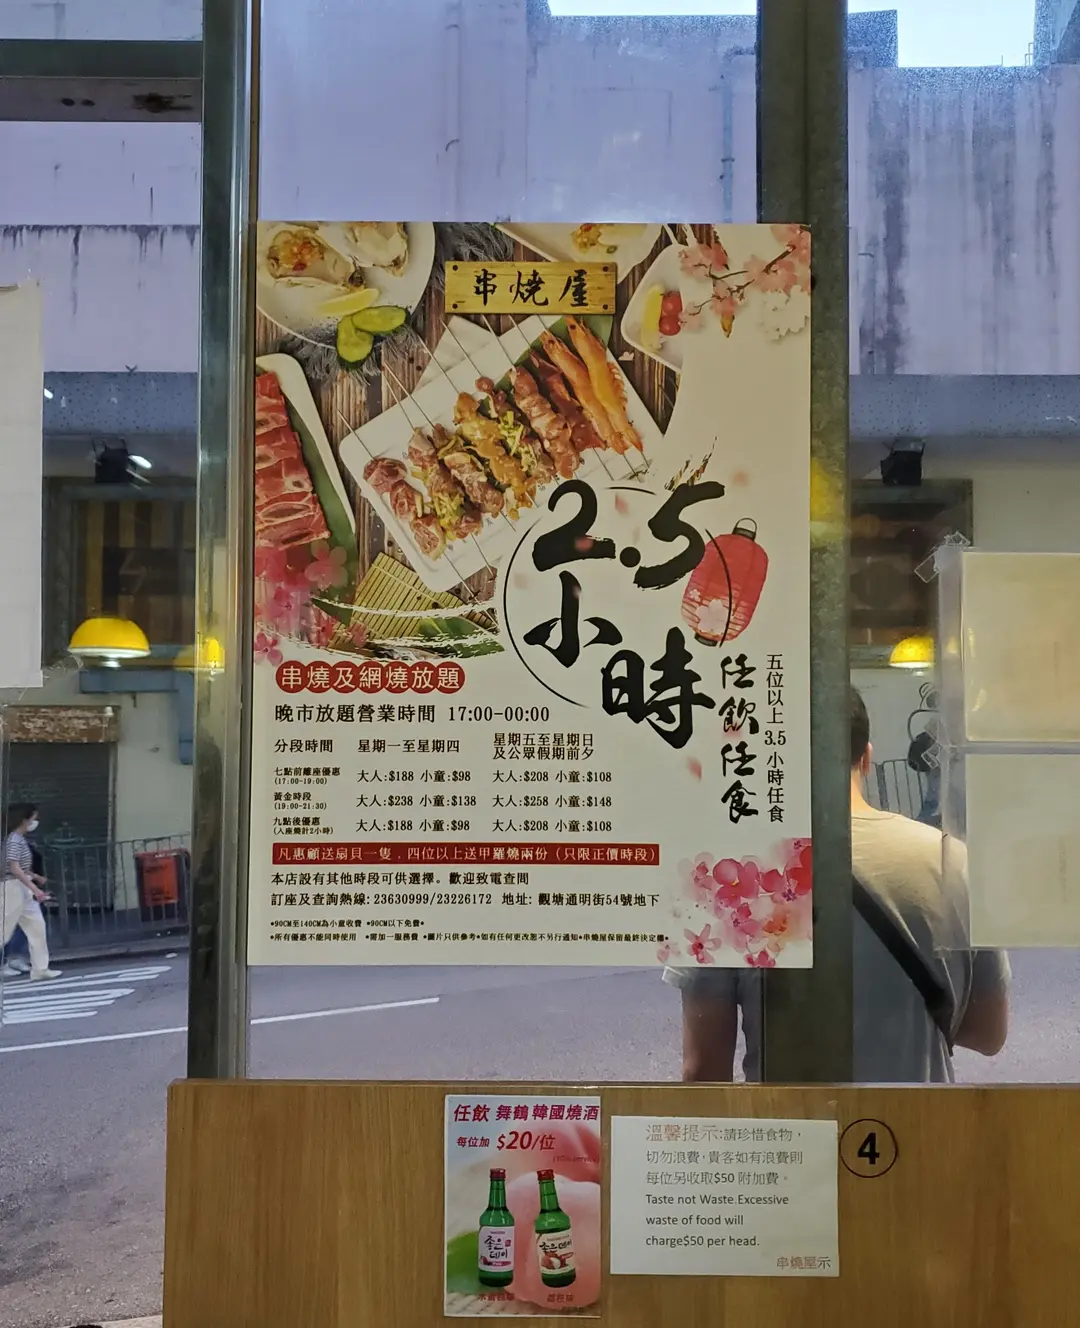 串燒屋
2.5
小時
任飲任食
五位以上3.5小時任食
串燒及網燒放題
晚市放題營業時間 17:00-00:00
分段時間 星期一至星期四 星期五至星期日
及公眾假期前夕
七點前離座優惠
(17:00-19:00)
大人:$188 小童:$98 大人:$208 小童:$108
黃金時段
(19:00-21:30)
大人:$238 小童:$138 大人:$258 小童:$148
九點後優惠
(入座燒計2小時)
大人:$188 小童:$98 大人:$208 小童:$108
凡惠顧送扇貝一隻﹐四位以上送甲羅燒兩份(只限正價時段)
本店設有其他時段可供選擇。歡迎致電查問
訂座及查詢熱線:23630999/23226172 地址:觀塘通明街54號地下
•90CM至140CM為小童收費 •90CM以下免費•
•所有優惠不能同時使用 •需加一服務費 •圖片只供參考•如有任何更改恕不另行通知•串燒屋保留最終決定權•
任飲 舞鶴 韓國燒酒
每位加 $20/位
좋은
데이
좋은데이
荔枝味
溫馨提示:請珍惜食物，
切勿浪費，貴客如有浪費則
每位另收取$50 附加費。
Taste not Waste.Excessive
waste of food will
charge$50 per head.
串燒屋示
4